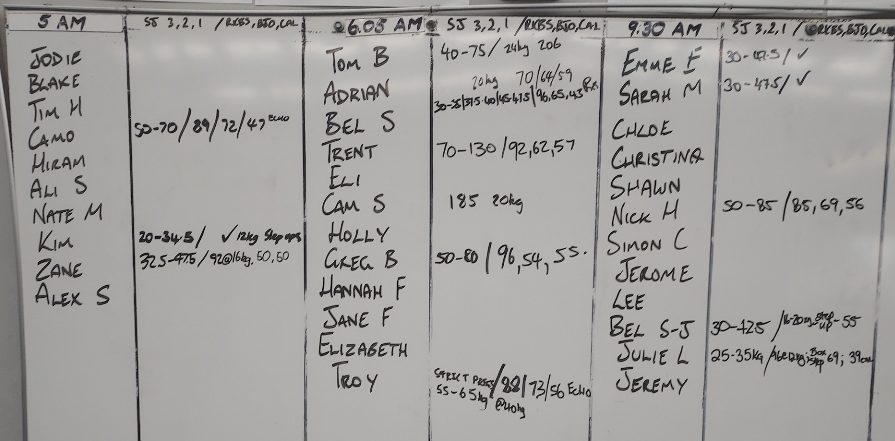 5 AM SJ 3,2,1 / RKBS, BJO, CAL
JODIE
BLAKE
TIM H
CAMO 50-70/89/72/47 ECHO
HIRAM
ALI S
NATE M
KIM 20-34.5/ ✓ 12kg Step ups
ZANE 32.5-47.5/92@16kg, 50, 50
ALEX S
6.05 AM SJ 3,2,1 /RKBS, BJO, CAL
TOM B 40-75/24kg 206
20kg 70/64/59
ADRIAN
BEL S 30-35/37.5-40/45-47.5/96,65,43
TRENT 70-130/92,62,57
ELI
CAM S 185 20kg
HOLLY
GREG B 50-80/96,54,55.
HANNAH F
JANE F
ELIZABETH
TROY STRICT PRESS/88/73/56 ECHO
55-65kg @40kg
9.30 AM SJ 3,2,1/RKBS, BJO, CAL
EMME E 30-47.5/✓
SARAH M 30-47.5/✓
CHLOE
CHRISTINA
SHAWN
NICK H 50-85/85,69,56
SIMON C
JEROME
LEE
BEL S-J 30-42.5 /16-20kg, step up - 55
JULIE L 25-35kg / 12kg; Box Step 69; 39cal
JEREMY